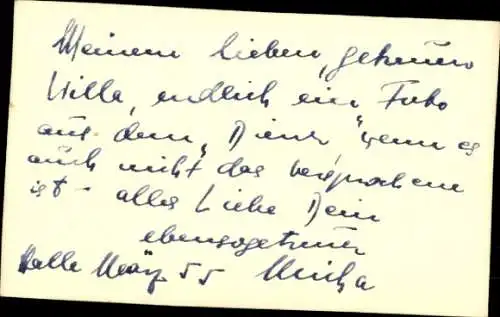 Meinem lieben, getreuen
Willa, endlich ein Foto
aus dem "Diener" wenn es
auch nicht das versprochene
ist - alles Liebe Dein
ebensogetreuer
Halle März 55 Micha